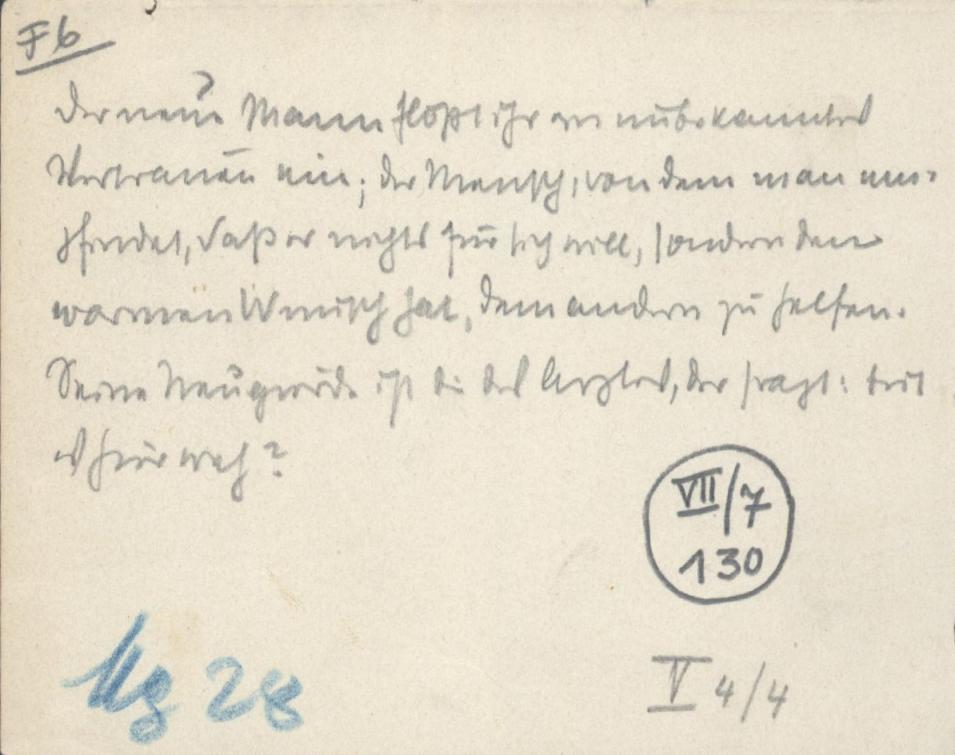 F6
Der neue Mann flößt ihr ein unbekanntes
Vertrauen ein; der Mensch, von dem man em-
pfindet, daß er nichts für sich will, sondern den
warmen Wunsch hat, dem andern zu helfen.
Seine Neugierde ist die des Arztes, der fragt: tut
es hier weh?
VII/7
130
Mg 28
V 4/4